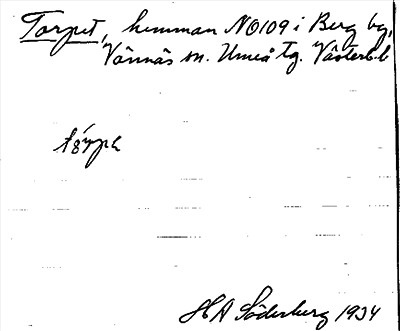 Torpet, hemman NO109 i Berg by,
Vännäs sn. Umeå tg. Västerb.
H A Söderberg 1934